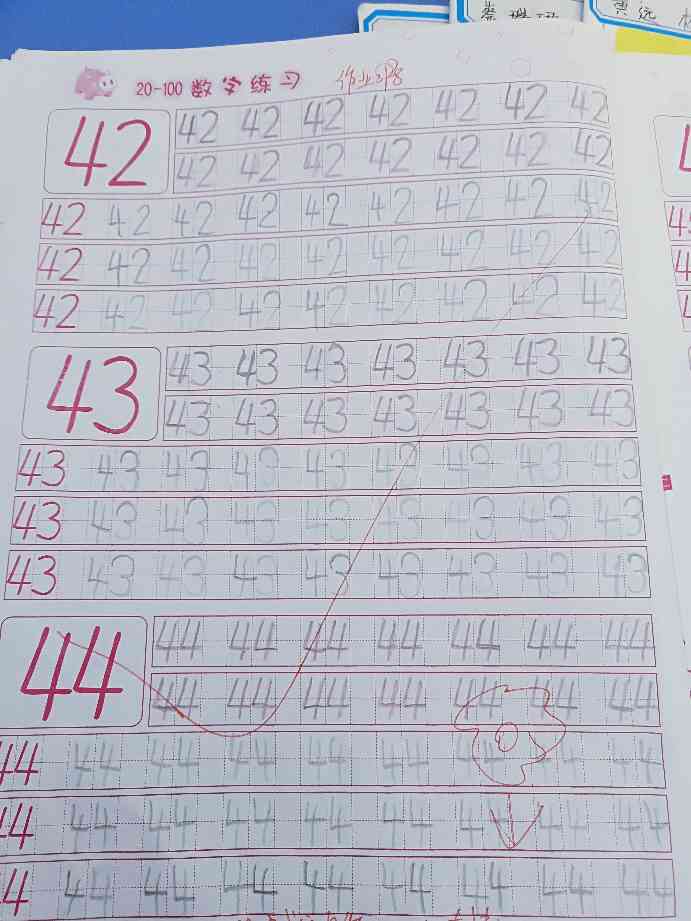 20-100 数字练习
42 42 42 42 42 42 42 42
42 42 42 42 42 42 42
42 42 42 42 42 42 42 42 42
42 42 42 42 42 42 42 42 42
42 42 42 42 42 42 42 42 42
43 43 43 43 43 43 43 43
43 43 43 43 43 43 43
43 43 43 43 43 43 43 43 43
43 43 43 43 43 43 43 43 43
43 43 43 43 43 43 43 43 43
44 44 44 44 44 44 44 44
44 44 44 44 44 44 44
44 44 44 44 44 44 44 44 44
44 44 44 44 44 44 44 44 44
4 44 44 44 44 44 44 44 44